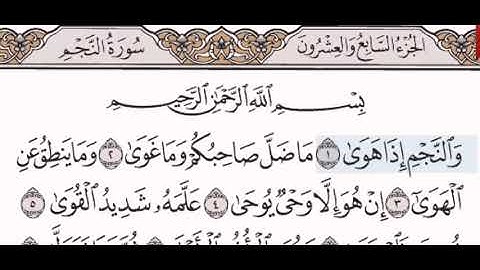 الجزء السابع والعشرون
سورة النجم
بِسْمِ اللَّهِ الرَّحْمَٰنِ الرَّحِيمِ
وَالنَّجْمِ إِذَا هَوَىٰ ١ مَا ضَلَّ صَاحِبُكُمْ وَمَا غَوَىٰ ٢ وَمَا يَنطِقُ عَنِ
الْهَوَىٰ ٣ إِنْ هُوَ إِلَّا وَحْيٌ يُوحَىٰ ٤ عَلَّمَهُ شَدِيدُ الْقُوَىٰ ٥